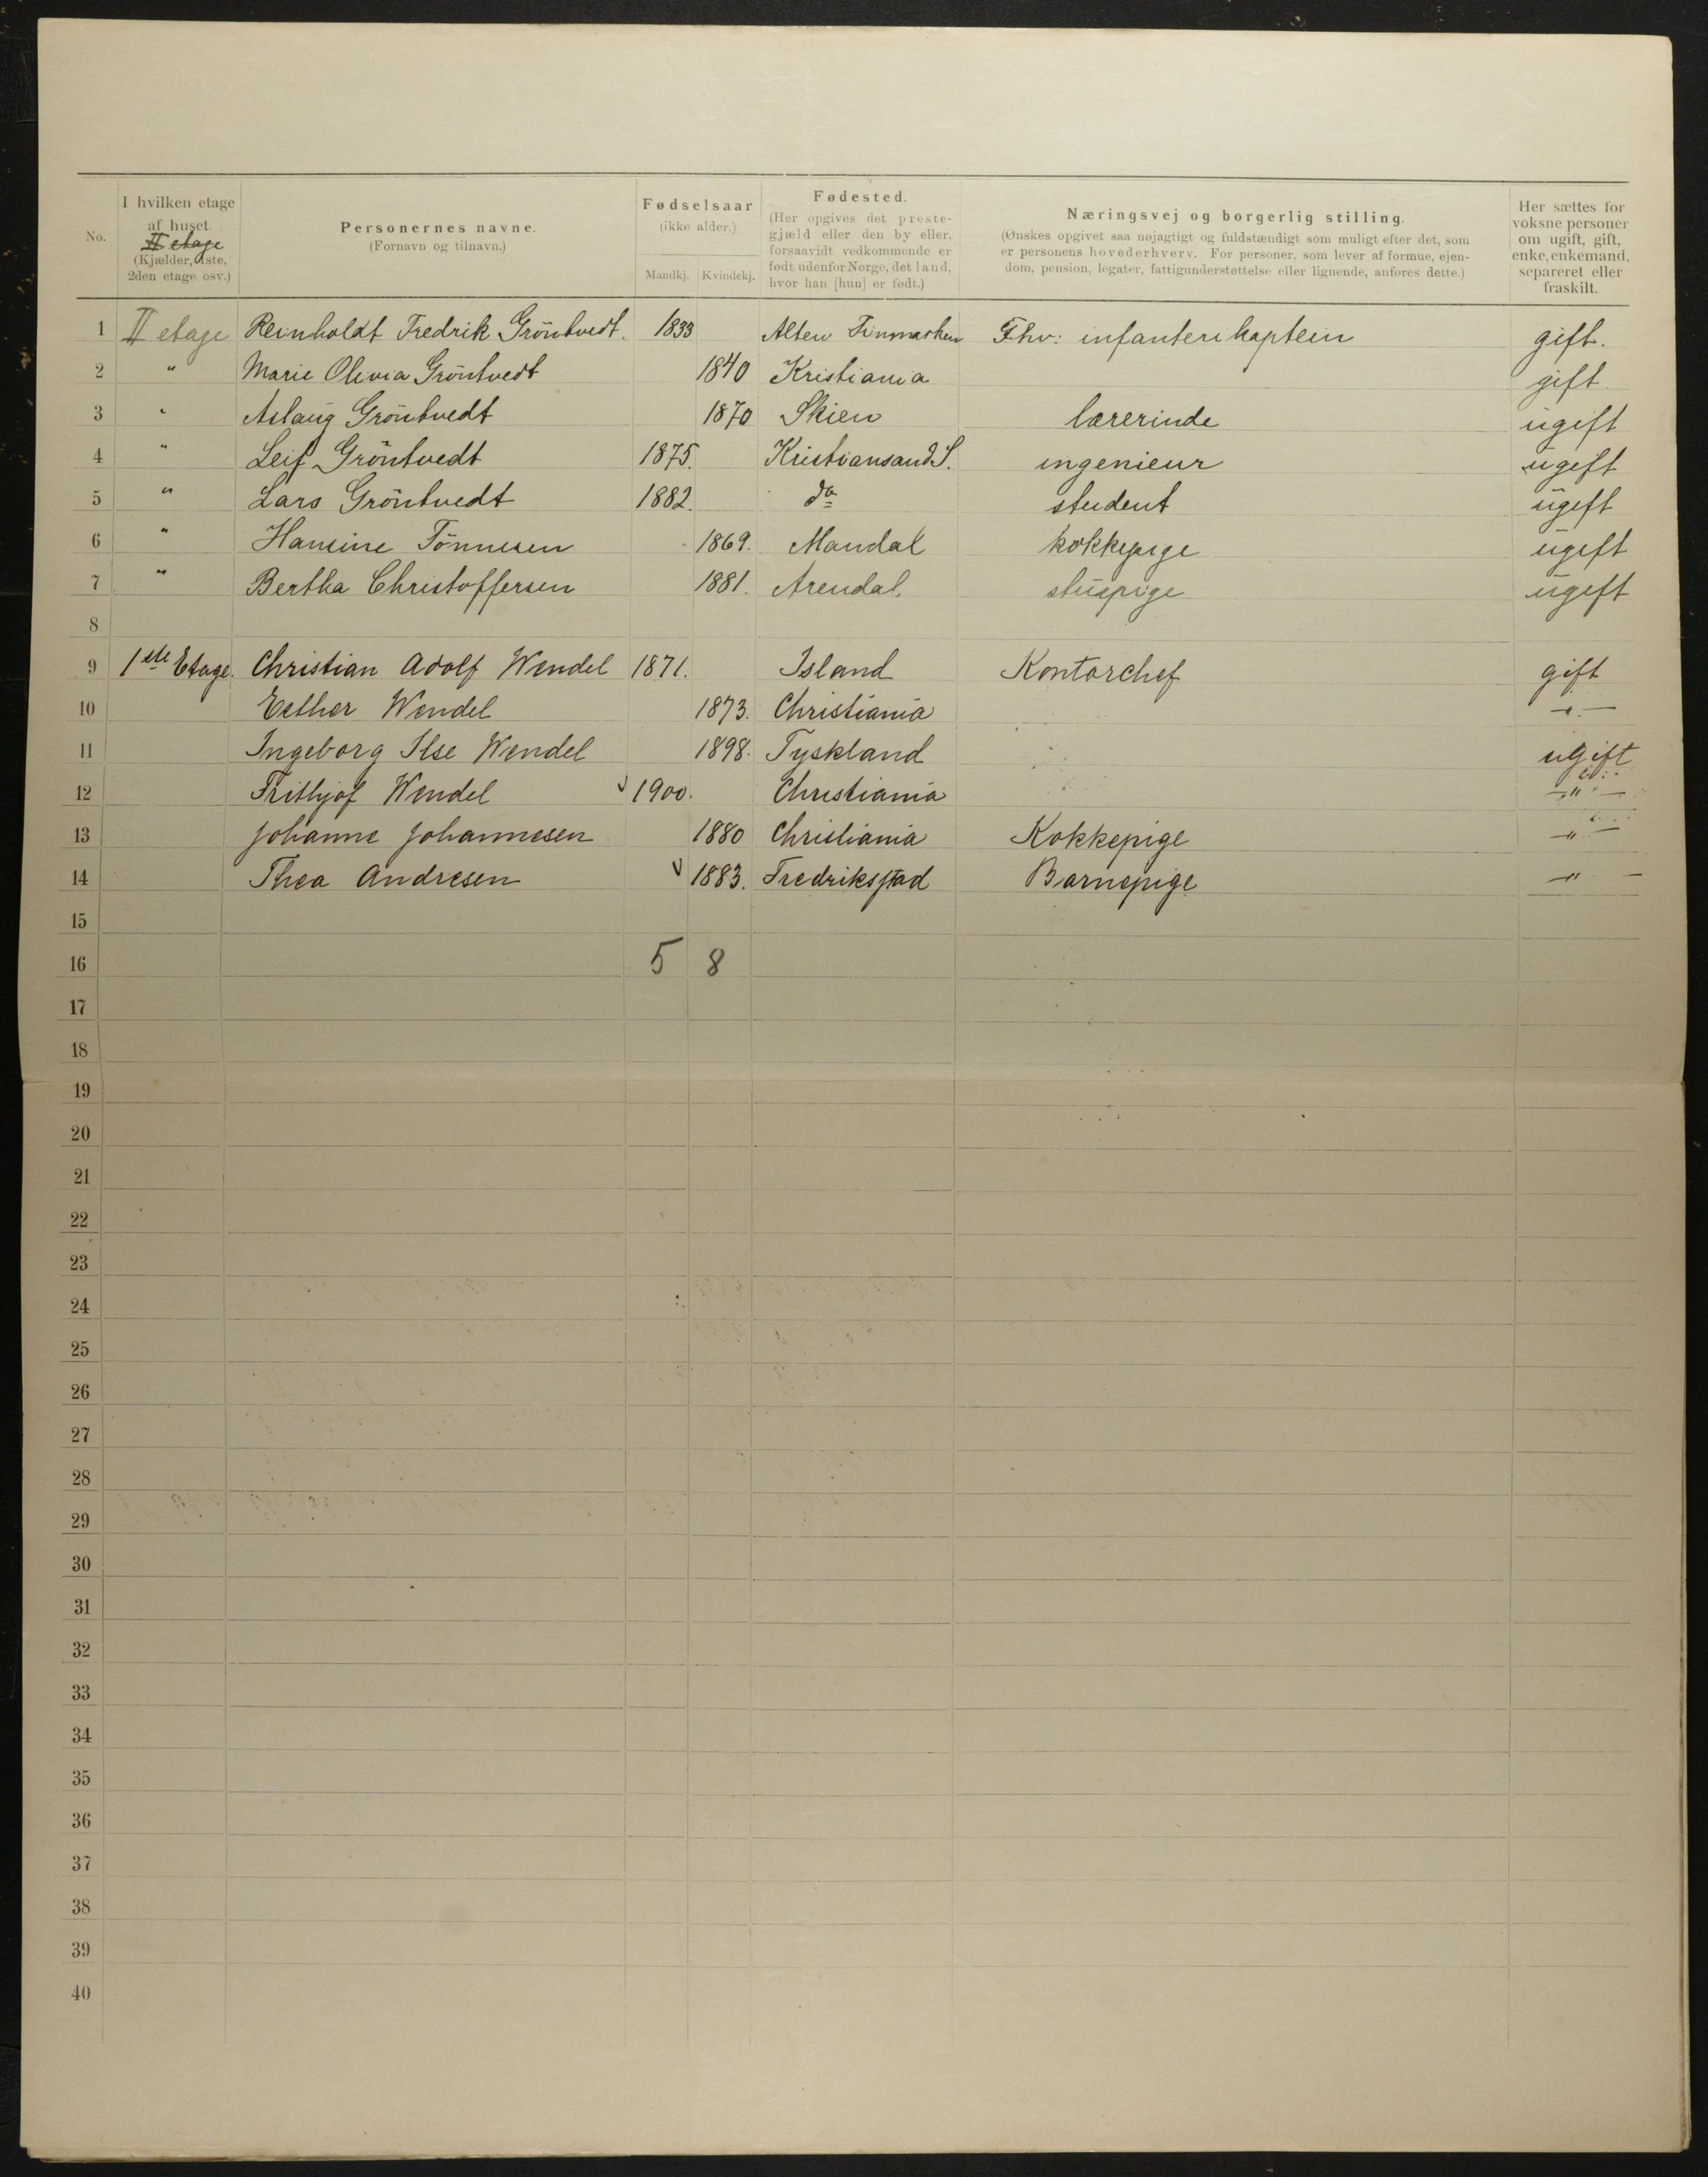 No.
I hvilken etage af huset. II etage (Kjælder, 1ste, 2den etage osv.)
Personernes navne. (Fornavn og tilnavn.)
Fødselsaar (ikke alder.)
Mandkj. Kvindekj.
Fødested. (Her opgives det prestegjæld eller den by eller, forsaavidt vedkommende er født udenfor Norge, det land, hvor han [hun] er født.)
Næringsvej og borgerlig stilling. (Ønskes opgivet saa nøjagtigt og fuldstændigt som muligt efter det, som er personens hovederhverv. For personer, som lever af formue, ejendom, pension, legater, fattigunderstøttelse eller lignende, anføres dette.)
Her sættes for voksne personer om ugift, gift, enke, enkemand, separeret eller fraskilt.
1 II etage Reinholdt Fredrik Gröntvedt. 1833 Alten Finmarken Fhv: infanterikaptein gift.
2 " Marie Olivia Gröntvedt 1840 Kristiania gift
3 " Aslaug Gröntvedt 1870 Skien lærerinde ugift
4 " Leif Gröntvedt 1875. Kristiansand S. ingenieur ugift
5 " Lars Gröntvedt 1882. do student ugift
6 " Hansine Tönnesen 1869. Mandal kokkepige ugift
7 " Bertha Christoffersen 1881. Arendal stuepige ugift
8
9 1ste Etage. Christian Adolf Wendel 1871. Island Kontorchef gift
10 Esther Wendel 1873. Christiania —"—
11 Ingeborg Ilse Wendel 1898. Tyskland ugift
12 Frithjof Wendel 1900. Christiania —"—
13 Johanne Johannesen 1880 Christiania Kokkepige —"—
14 Thea Andresen 1883. Fredrikstad Barnepige —"—
15
16 5 8
17
18
19
20
21
22
23
24
25
26
27
28
29
30
31
32
33
34
35
36
37
38
39
40